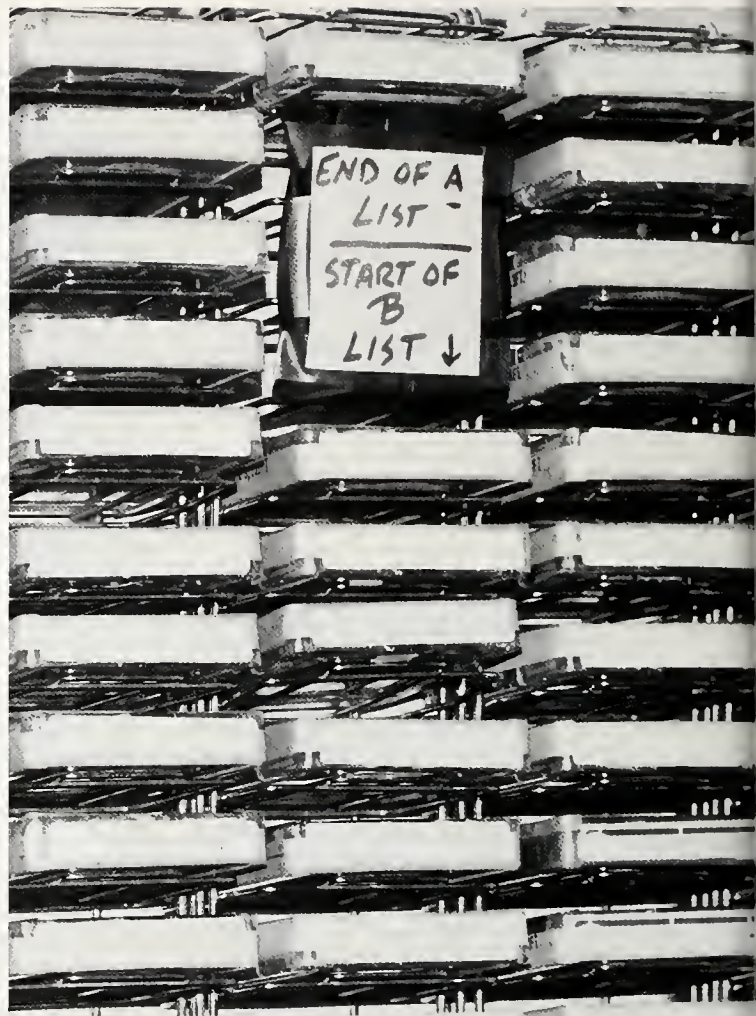 END OF A
LIST
START OF
B
LIST ↓